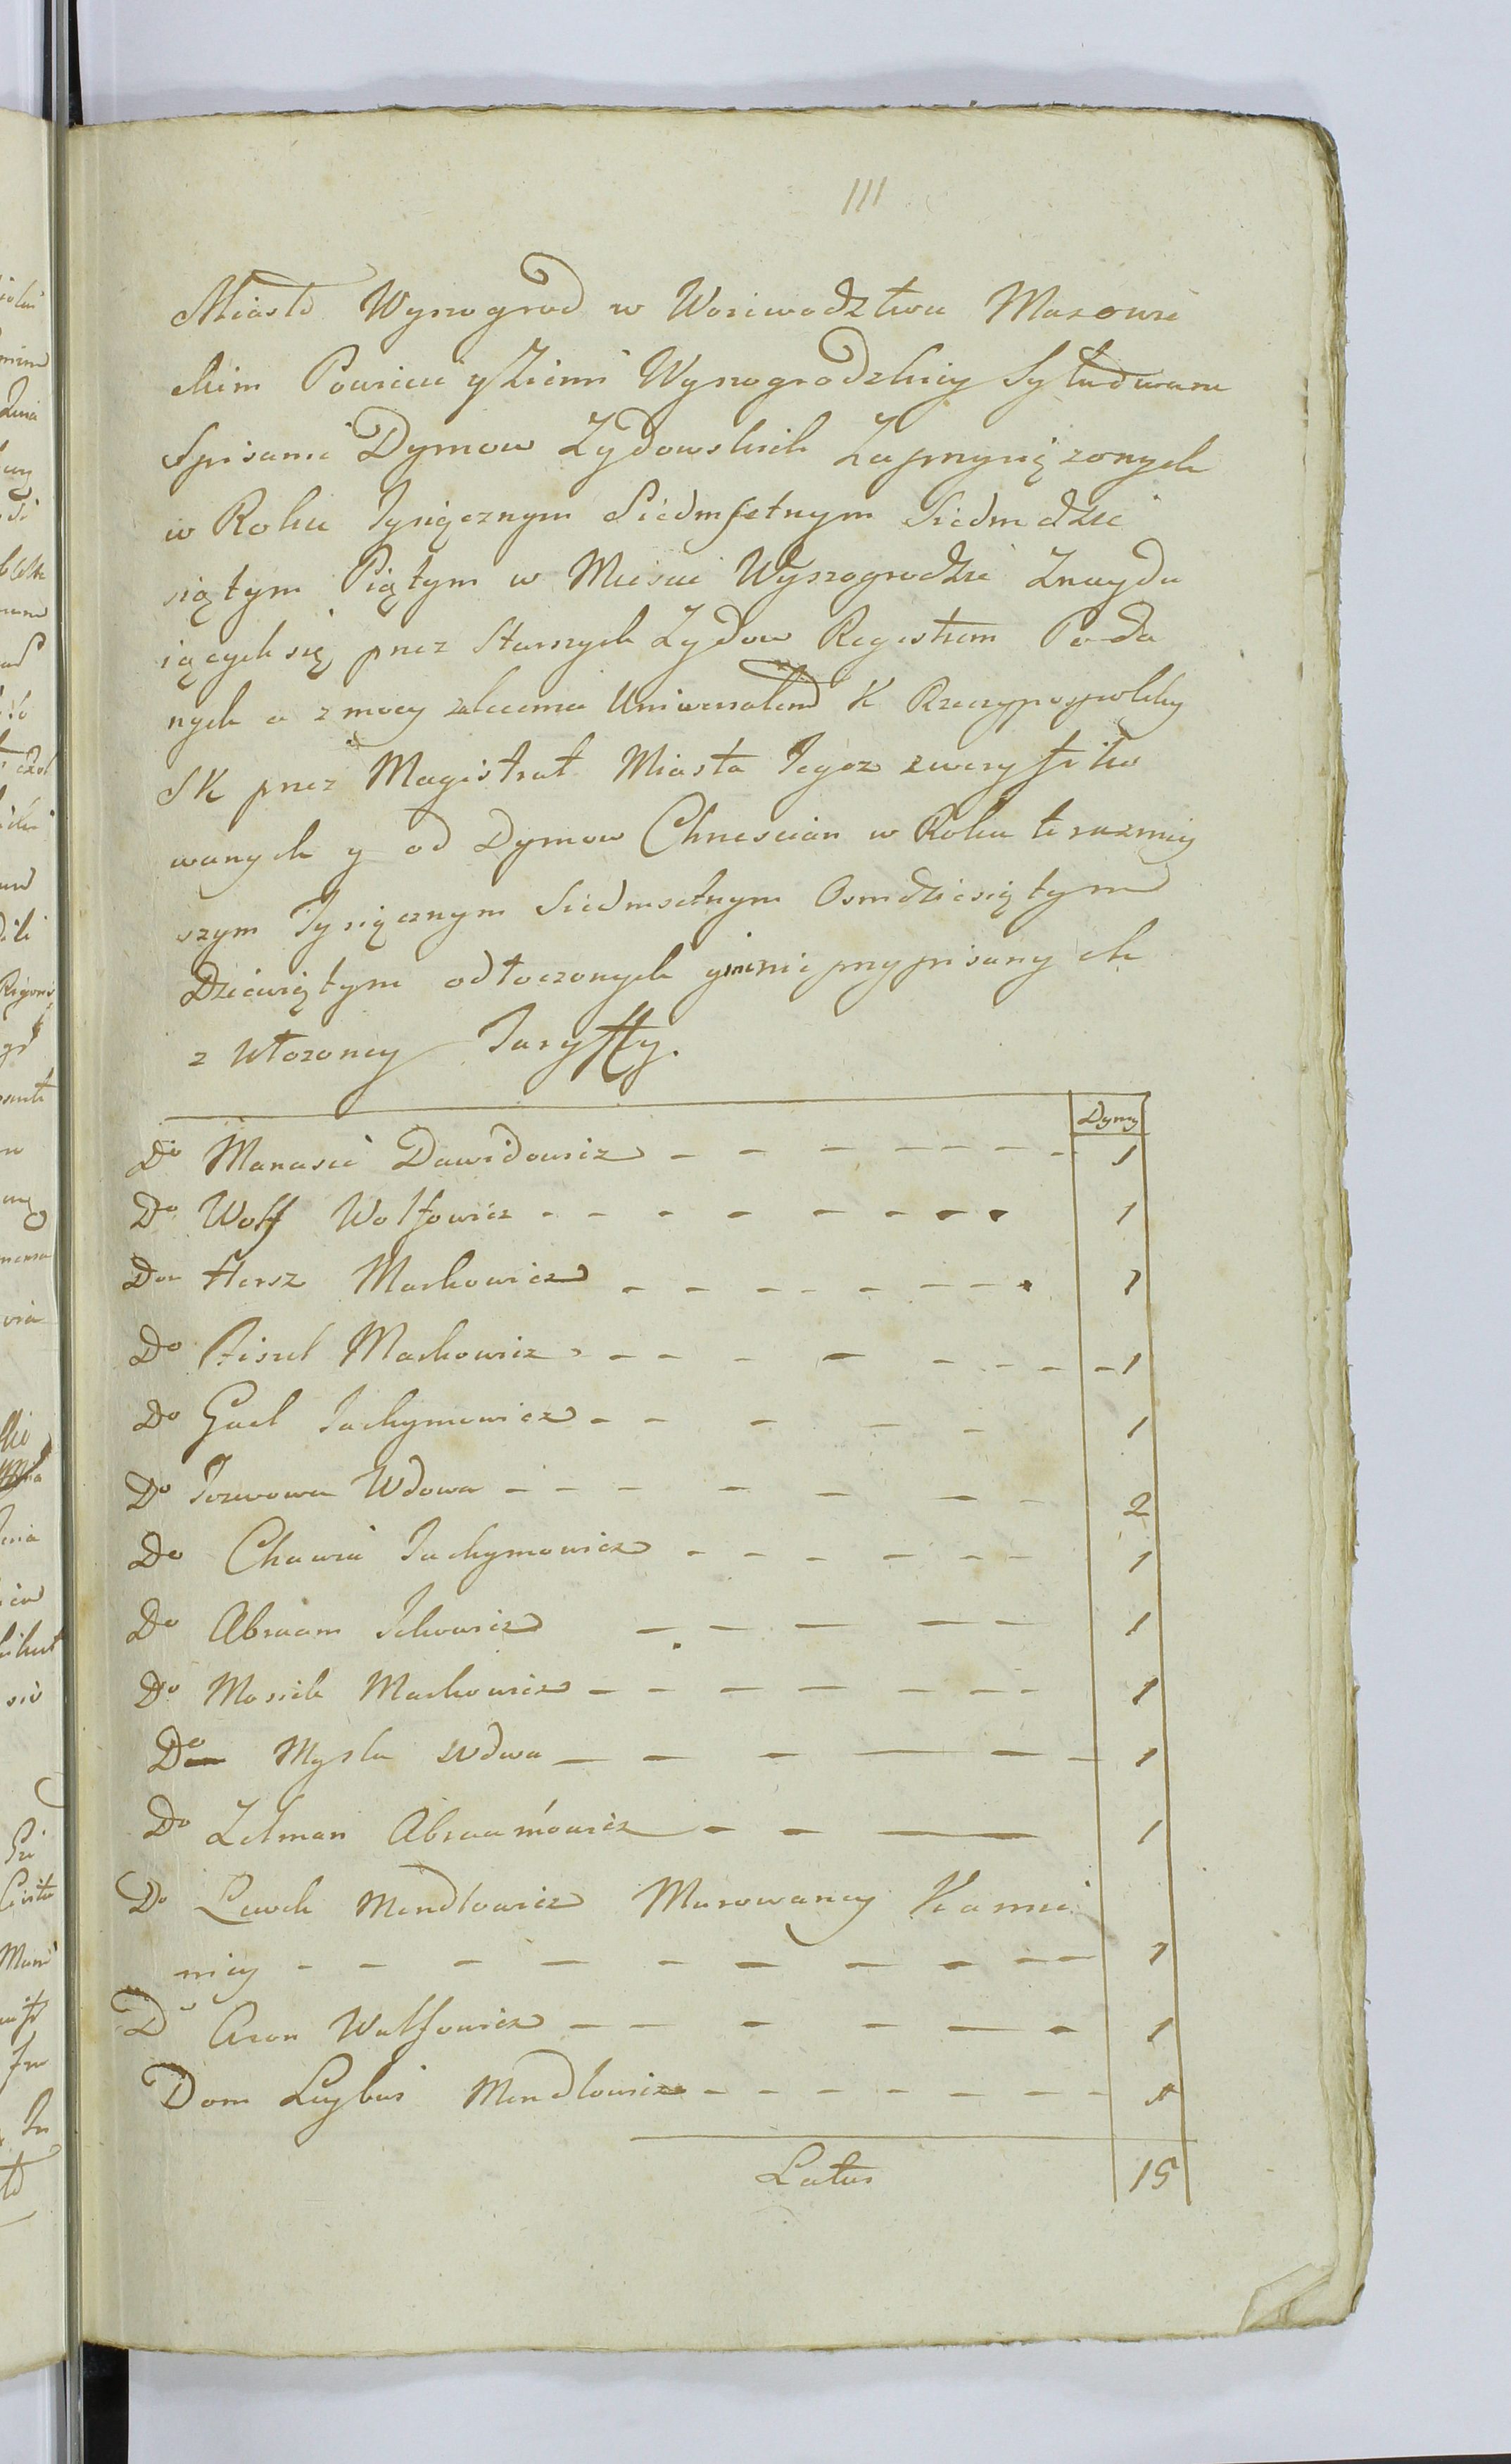 111
Miasto Wyszogrod w Woiewodztwu Mazowie
ckim Powiecie y Ziemi Wyszogrodzkiey Sytuowane
Spisanie Dymow Zydowskich Zaprzysięzonych
w Roku Tysięcznym Siedmsetnym Siedmdzie
siątym Piątym w Miescie Wyszogrodzie Znaydu
iących się przez Starszych Zydow Regestrem Poda
nych a z mocy zalecenia Uniwersałem K Rzeczypospolitey
SK przez Magistrat Miasta Tegoz zweryfiko
wanych y od Dymow Chrzescian w Roku terazniey
szym Tysięcznym Siedmsetnym Osmdziesiątym
Dziewiątym odłoczonych przypisanych
z Ułozoney Taryffy.
Dymy
Do Manasie Dawidowicz - - - - - - - 1
Do Wolf Wolfowicz - - - - - - - - 1
Dom Hersz Markowicz - - - - - - - 1
Do Fiszel Markowicz - - - - - - - - 1
Do Gael Jachymowicz - - - - - 1
Do Jozwowa Wdowa - - - - - - - 2
Do Chawa Jachymowicz - - - - - - 1
Do Abraam Ickowicz - - - - - 1
Do Mosiek Markowicz - - - - - - - 1
Do Myska Wdwa - - - - - - 1
Do Zelman Abraamowicz - - - 1
Do Lewek Mendlowicz Murowaney Kamie
nicy - - - - - - - - - - 1
Do Aron Wolfowicz - - - - - - 1
Dom Leybus Mendlowicz - - - - - - - 1
Latus 15